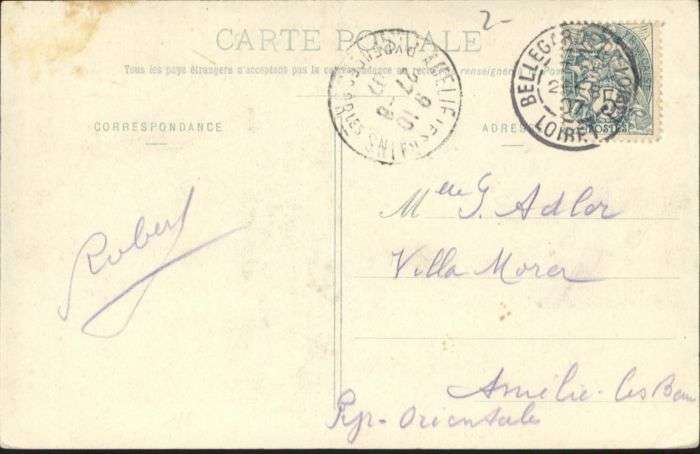 2-
CARTE POSTALE
Tous les pays étrangers n'acceptent pas la correspondance au recto. (Se renseigner à la Poste)
CORRESPONDANCE
ADRESSE
AMELIE-LES-BAINS
PYRÉNÉES
BELLEGARDE-DU-LOIRET
LOIRET
POSTES
Robert
Melle G. Adler
Villa Morer
Amélie-les-Bains
Pyr-Orientales